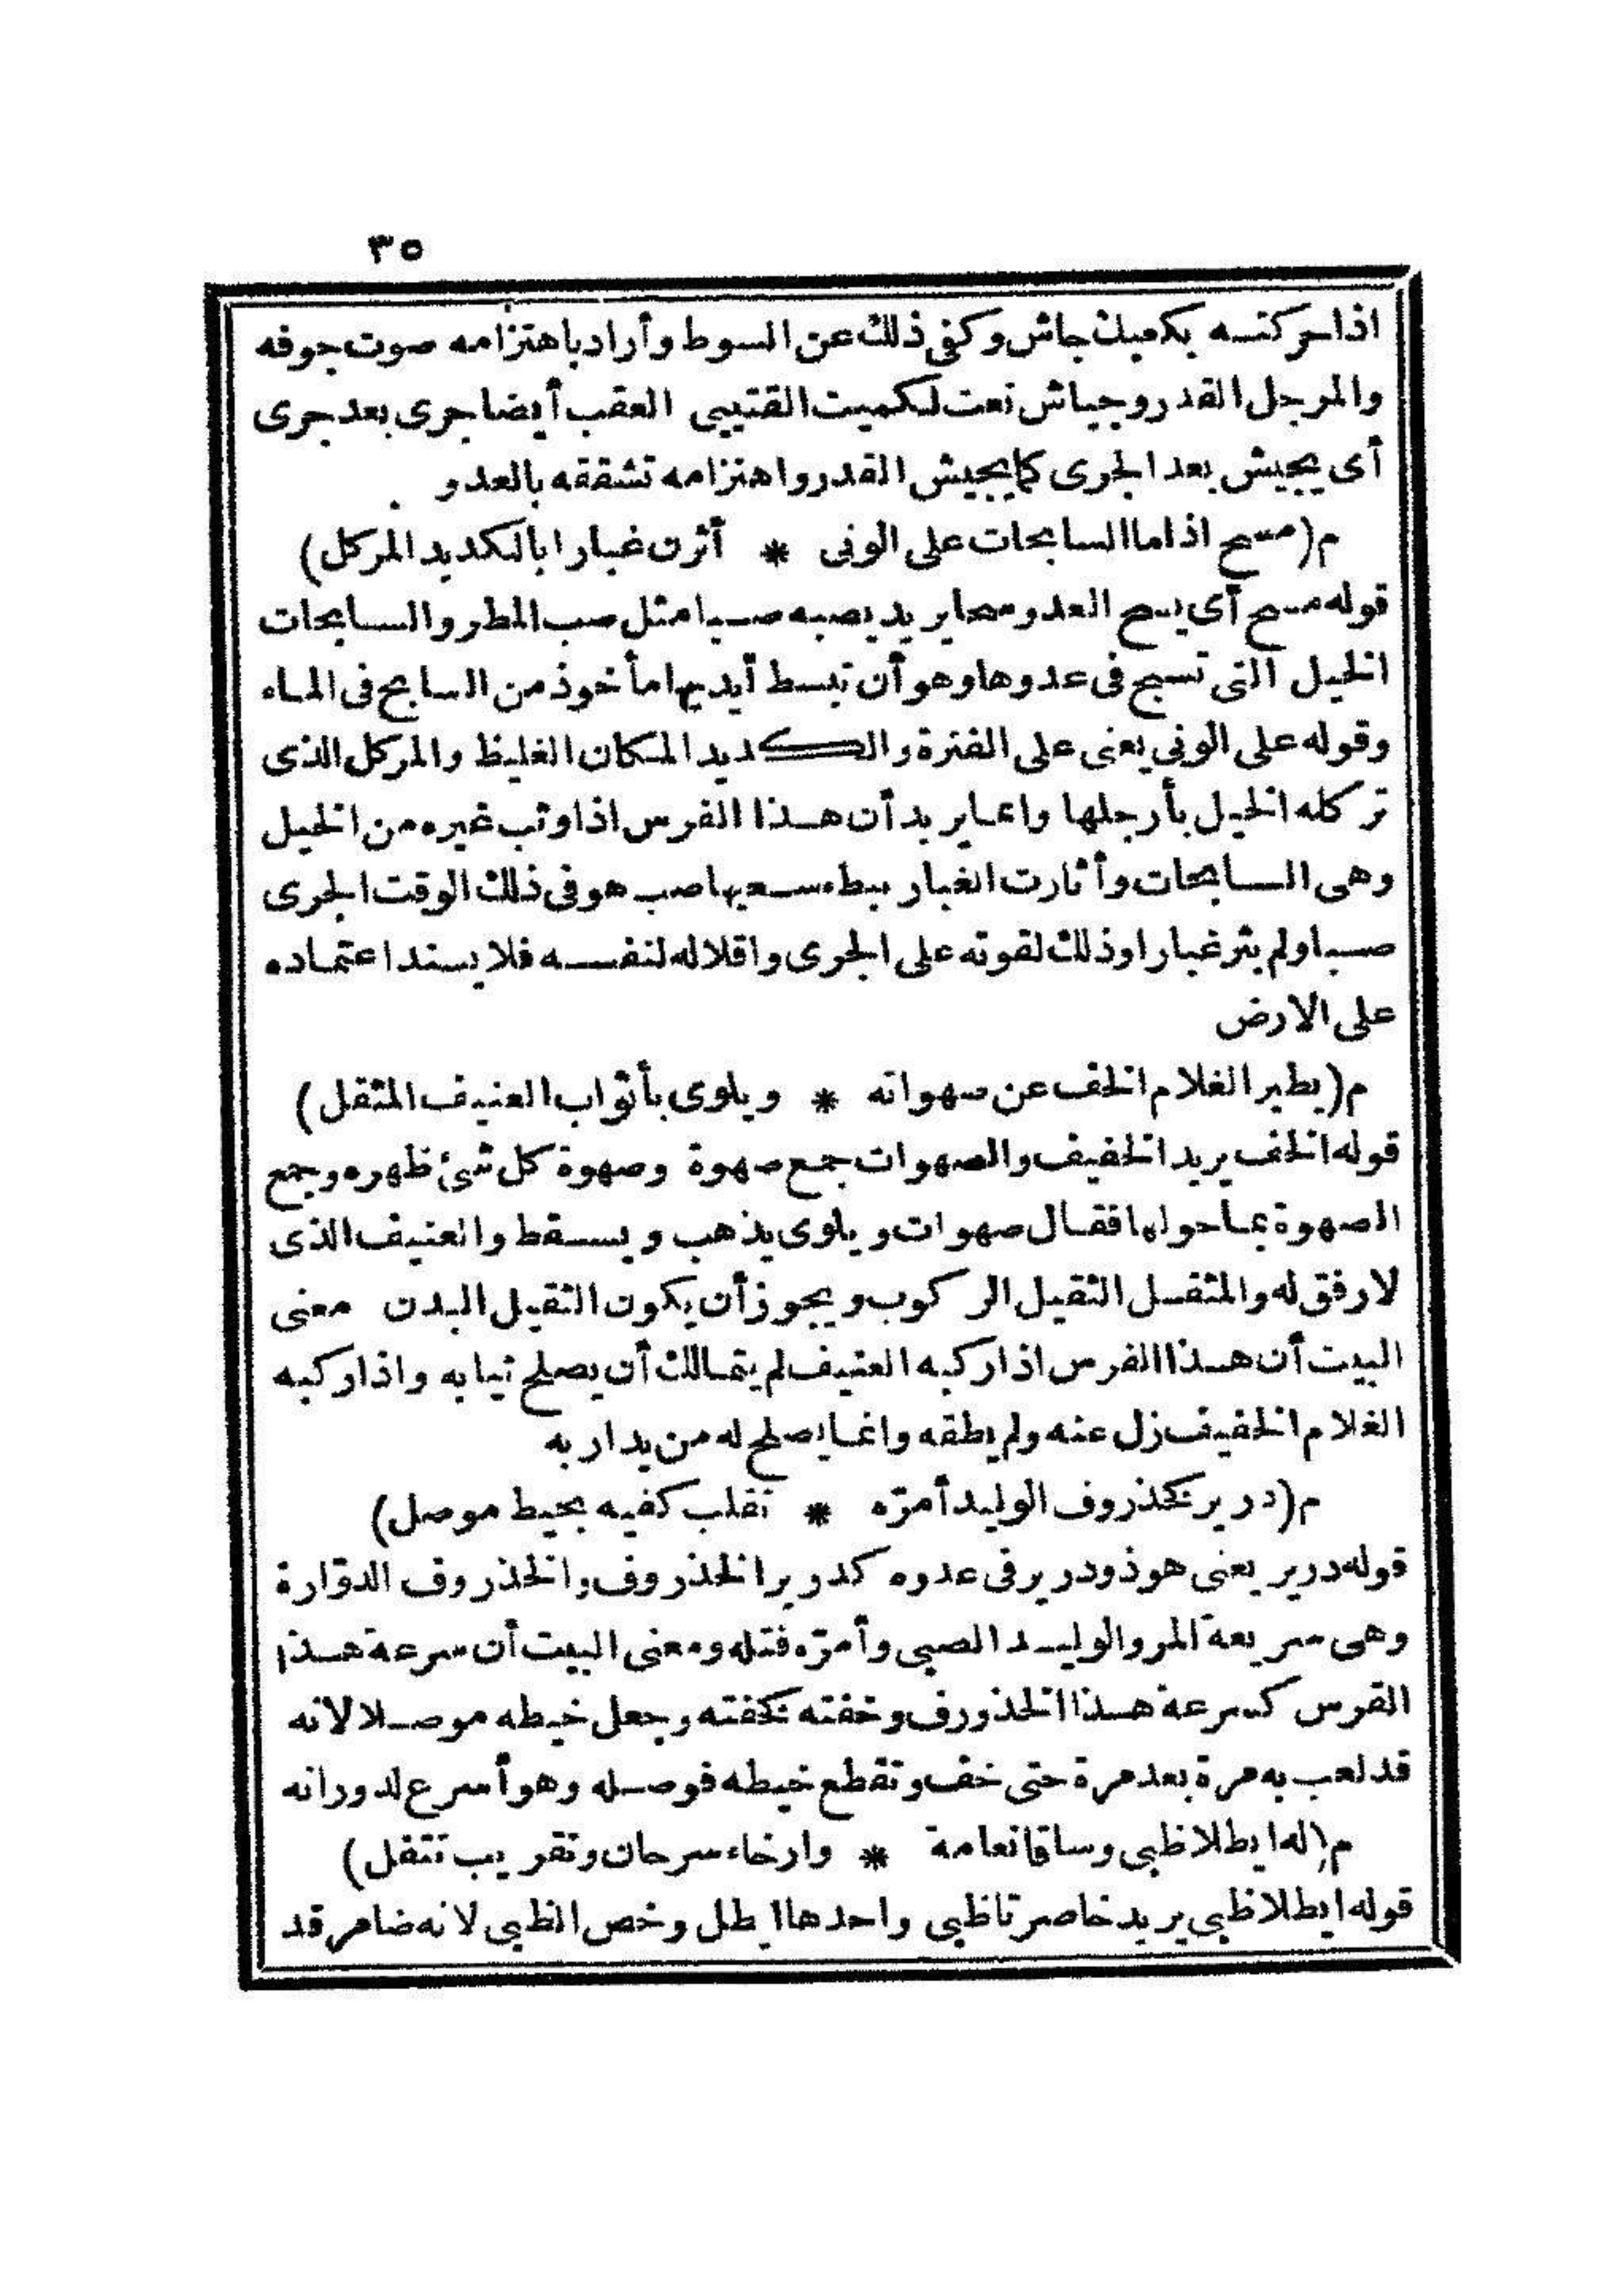 ٣٥
اذا حركته بكعبيك جاش وكفى ذلك عن السوط وأراد باهتزامه صوت جوفه
والمرجل القدر وجياش نعت لكميت القتيبى العقب أيضا جرى بعد جرى
أى يجيش بعد الجرى كما يجيش القدر واهتزامه تشققه بالعدو
م(مسح اذا ما السابحات على الونى * أثرن غبارا بالكديد المركل)
قوله مسح أى يسح العدو سحا يريد يصبه صبا مثل صب المطر والسابحات
الخيل التى تسبح فى عدوها وهو أن تبسط أيديها مأخوذ من السابح فى الماء
وقوله على الونى يعنى على الفترة والكديد المكان الغليظ والمركل الذى
تركله الخيل بأرجلها وانما يريد أن هذا الفرس اذا وثب غيره من الخيل
وهى السابحات وأثارت الغبار ببطء سعيها صب هو فى ذلك الوقت الجرى
صبا ولم يثر غبارا وذلك لقوته على الجرى واقلاله لنفسه فلا يستد اعتماده
على الارض
م(يطير الغلام الخف عن صهواته * ويلوى بأثواب العنيف المثقل)
قوله الخف يريد الخفيف والصهوات جمع صهوة وصهوة كل شئ ظهره وجمع
الصهوة بما حولها فقال صهوات ويلوى يذهب ويسقط والعنيف الذى
لا رفق له والمثقل الثقيل الركوب ويجوز أن يكون الثقيل البدن معنى
البيت أن هذا الفرس اذا ركبه العنيف لم يتمالك أن يصلح ثيابه واذا ركبه
الغلام الخفيف زل عنه ولم يطقه وانما يصلح له من يداريه
م(درير كخذروف الوليد أمرّه * تقلب كفيه بخيط موصل)
قوله درير يعنى هو ذو درير فى عدوه كدرير الخذروف والخذروف الدوّارة
وهى سريعة المر والوليد الصبى وأمرّه فتله ومعنى البيت أن سرعة هذا
الفرس كسرعة هذا الخذورف وخفته كخفته وجعل خيطه موصلا لانه
قد لعب به مرة بعد مرة حتى خف وتقطع خيطه فوصله وهو أسرع لدورانه
م(له ايطلا ظبى وساقا نعامة * وارخاء سرحان وتقريب تتفل)
قوله ايطلا ظبى يريد خاصرتا ظبى واحدها ايطل وخص الظبى لانه ضامر قد